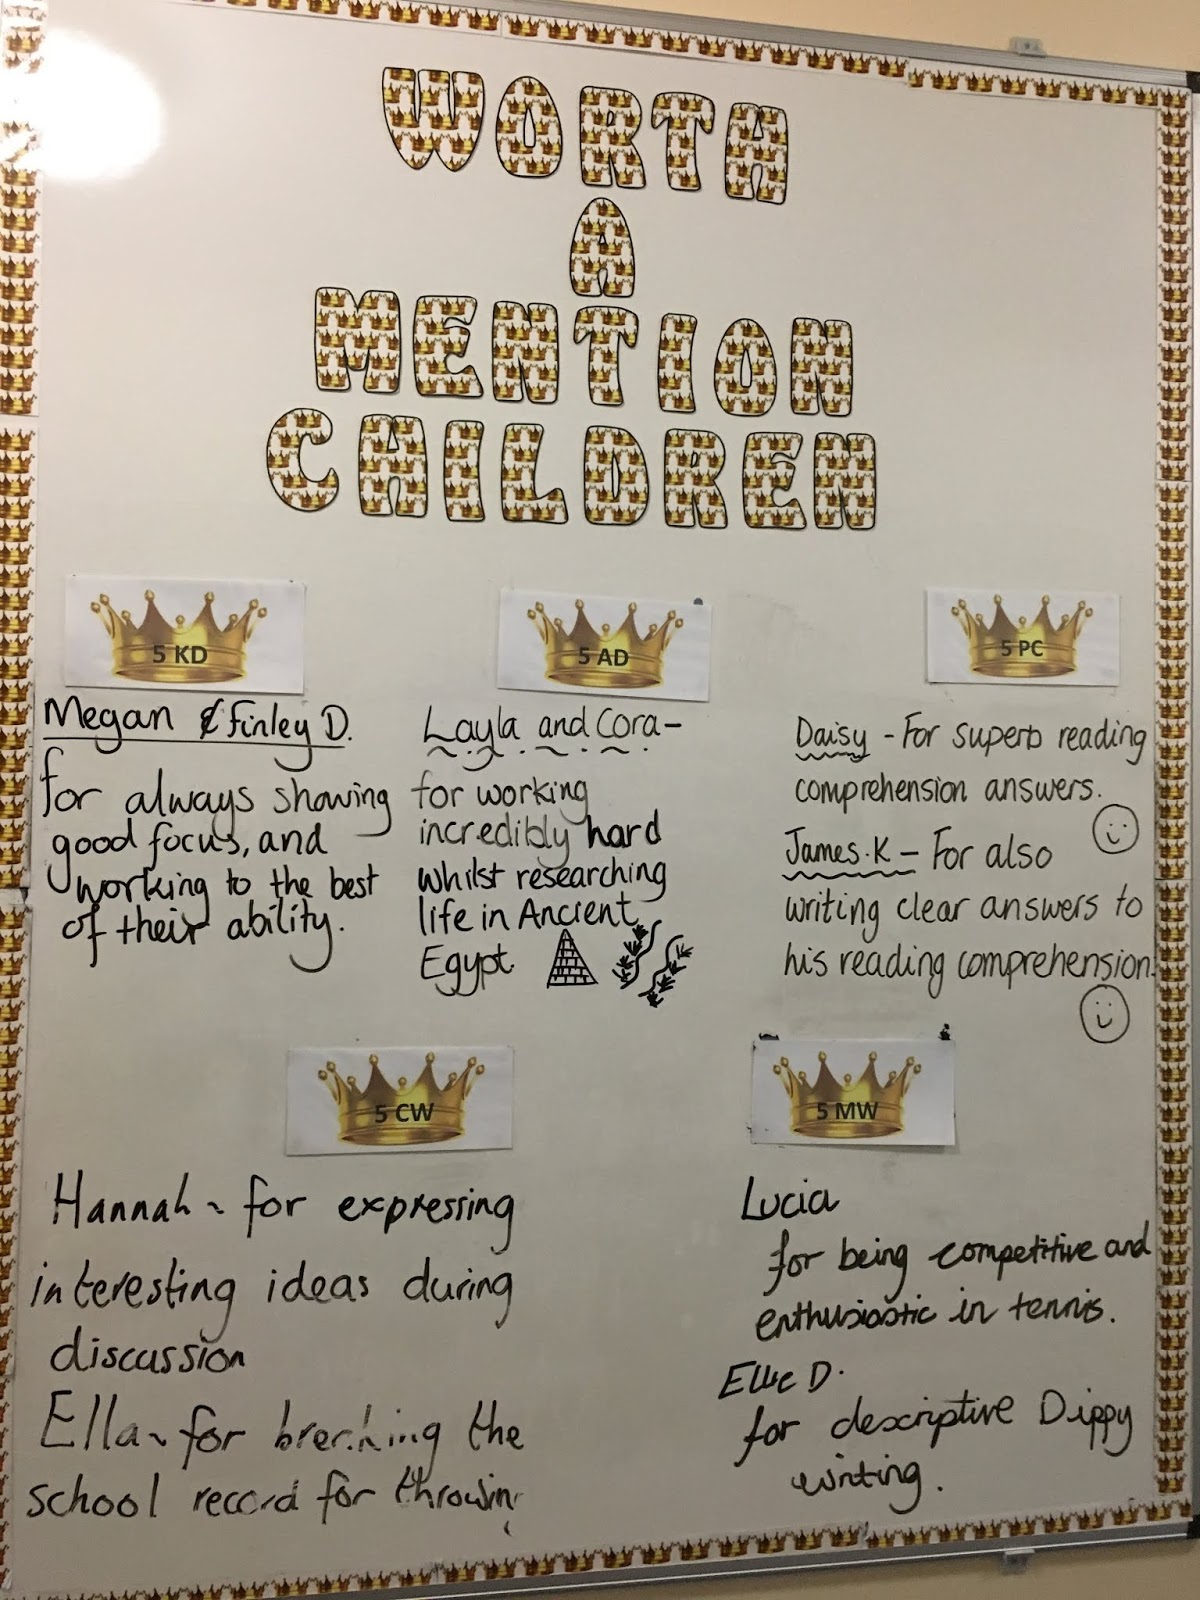 WORTH
A
MENTION
CHILDREN
5 KD
Megan & Finley D.
for always showing
good focus, and
working to the best
of their ability.
5 AD
Layla and Cora -
for working
incredibly hard
whilst researching
life in Ancient
Egypt.
5 PC
Daisy - For superb reading
comprehension answers.
James.K - For also
writing clear answers to
his reading comprehension.
5 CW
Hannah ~ for expressing
interesting ideas during
discussion
Ella ~ for breaking the
school record for throwin
5 MW
Lucia
for being competitive and
enthusiastic in tennis.
Ellie D.
for descriptive Dippy
writing.